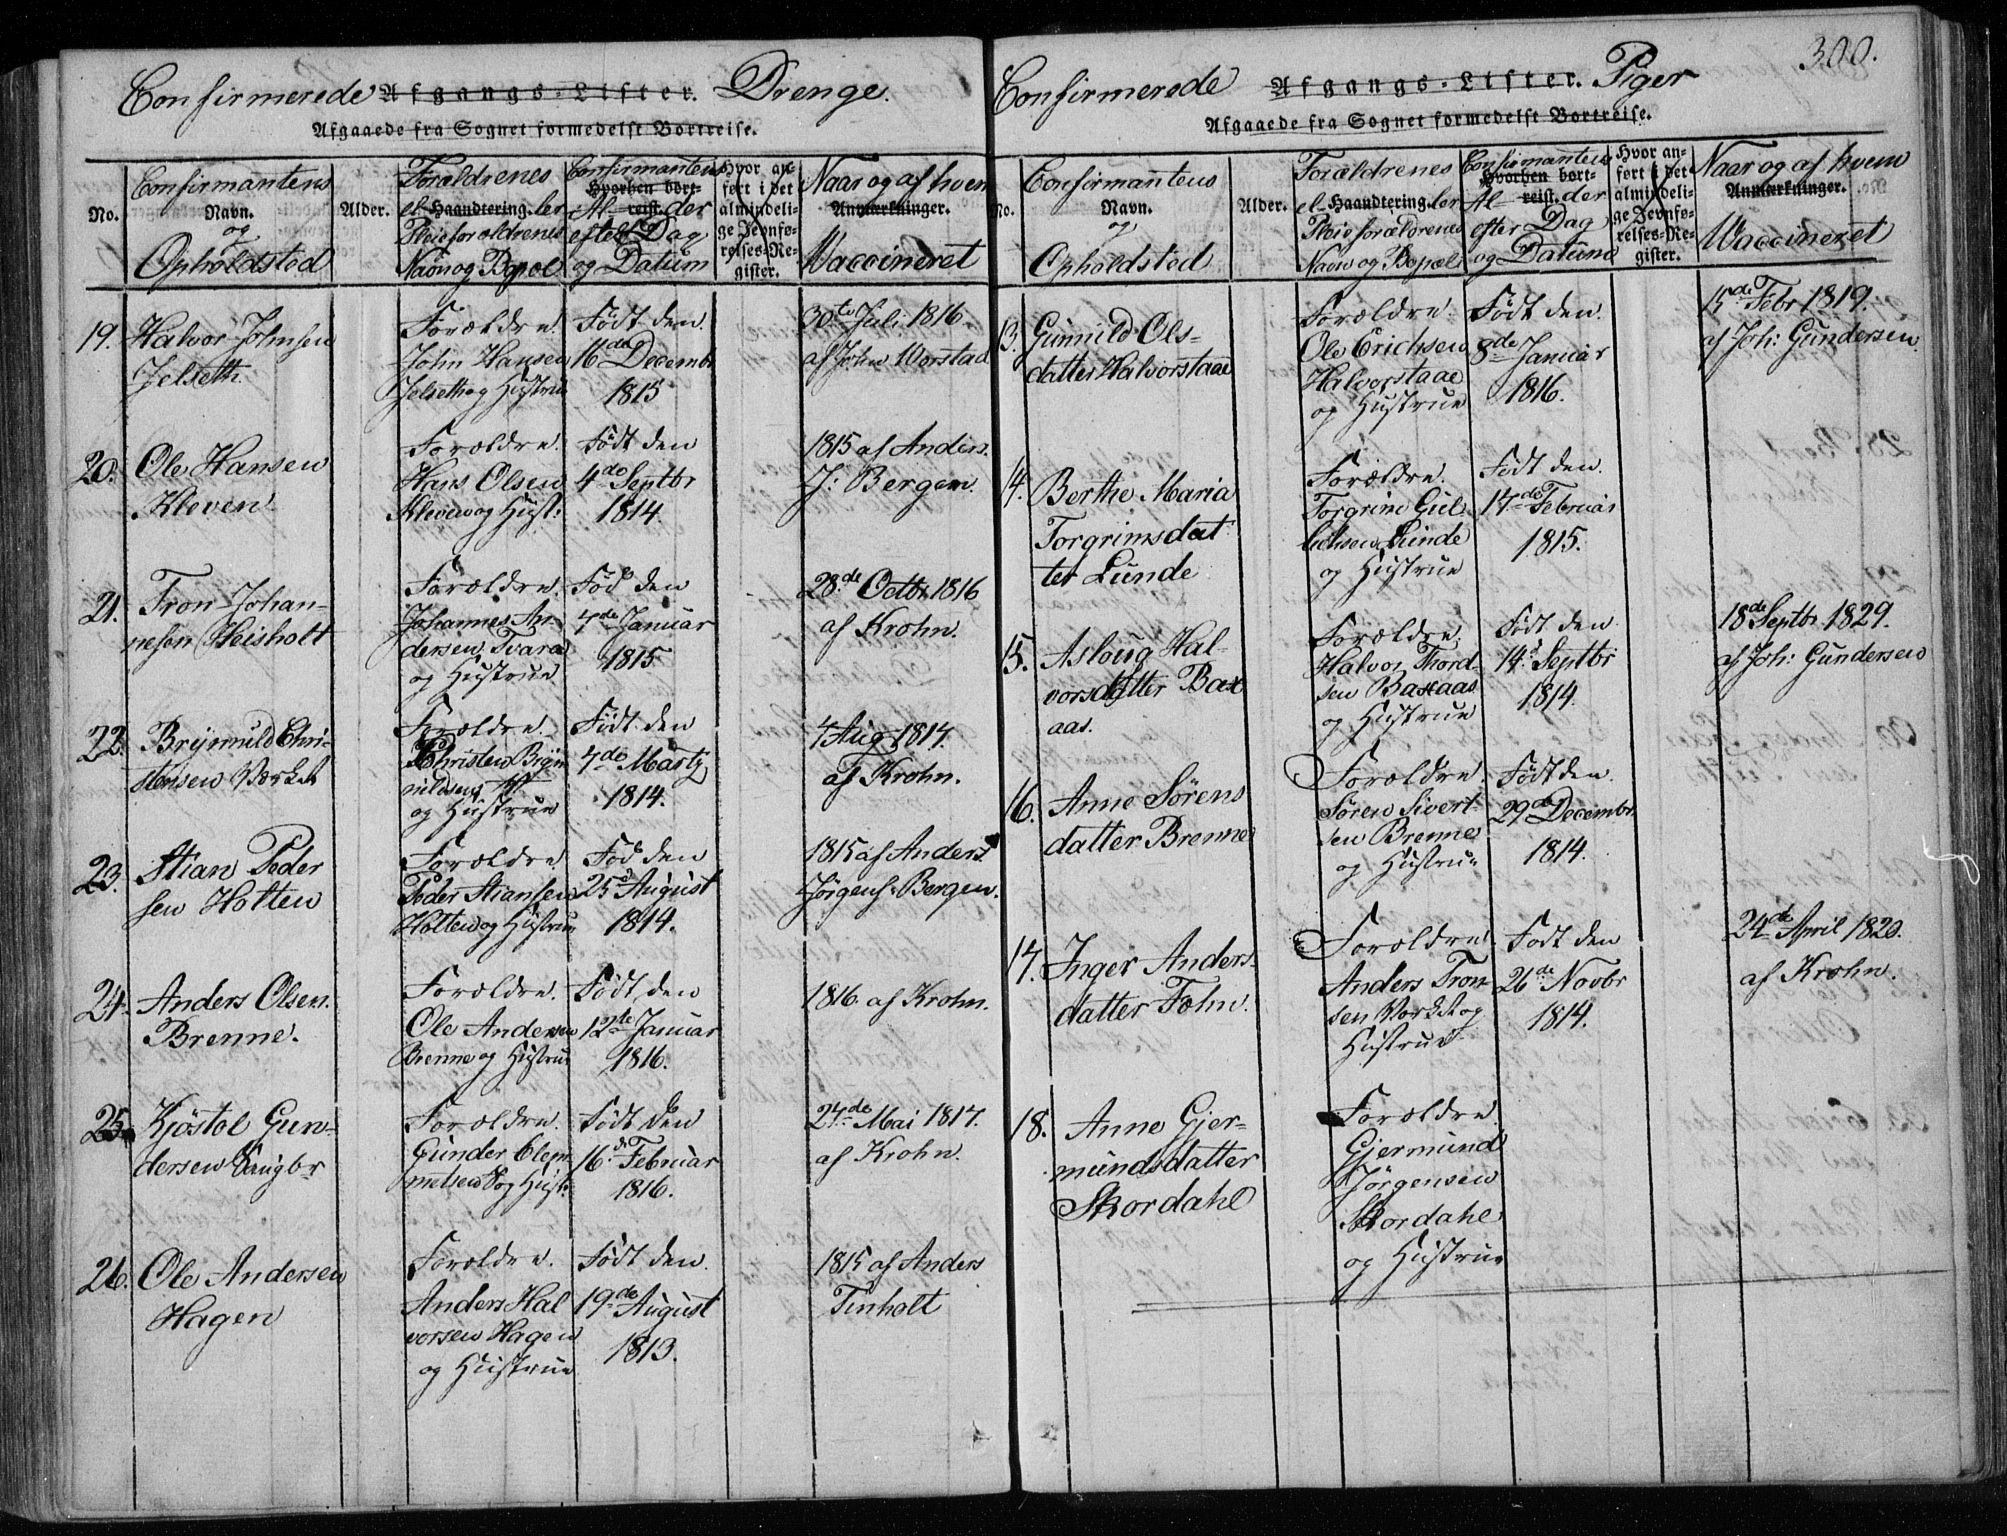 300.
Confirmerede Afgangs-Lister. Drenge.
Afgaaede fra Sognet formedelst Bortreise.
No.
Confirmantens
Navn.
og
Opholdsted
Alder.
Forældrenes
el Haandtering. ler
Pleieforældrenes
Navn og Bopæl
Confirmantens
Hvorhen bort-
Al- reist. der
efter Dag
og Datum
Hvor an-
ført i det
almindeli-
ge Jevnfø-
relses-Re-
gister.
Naar og af hvem
Anmærkninger.
Vaccineret
19. Halvor Johnsen
Jelseth
Forældre.
John Hansen
Jelseth og Hustrue
Født den
16de Decembr
1815
30te Juli 1816.
af John Vorstad
20. Ole Hansen
Kleven
Forældre.
Hans Olsen
Kleven og Hust:
Født den
4de Septbr
1814.
1815 af Anders
J: Bergen.
21. Tron Johan-
nesen Heisholt
Forældre.
Johannes An-
dersen Tvara
og Hustrue
Fød den
7de Januar
1815
28de Octbr 1816
af Krohn.
22. Brynuld Chri-
stensen Værket
Forældre.
Christen Bryn
nildsen
og Hustrue
Født den
7de Martz
1814.
7 Aug 1814.
af Krohn.
23. Stian Peder
sen Holten
Forældre
Peder Stiansen
Holten og Hustrue
Fød den
25d August
1814.
1815 af Anders
Jørgens: Bergen.
24. Anders Olsen
Brenne.
Forældre.
Ole Andersen
Brenne og Hustrue
Født den
12te Januar
1816.
1816 af Krohn.
25. Kjøstol Gun-
dersen
Forældre.
Gunder Clem
metsen og Hust:
Født den
16d Februar
1816.
27de Mai 1817.
af Krohn.
26. Ole Andersen
Hagen
Forældre.
Anders Hal
vorsen Hagen
og Hustrue
Født den
19de August
1813.
1815 af Anders
Tinholt
Confirmerede Afgangs-Lister. Piger
Afgaaede fra Sognet formedelst Bortreise.
No.
Confirmantens
Navn.
og
Opholdsted
Alder.
Forældrenes
el Haandtering. ler
Pleieforældrenes
Navn og Bopæl
Confirmantens
Hvorhen bort-
Al- reist. der
efter Dag
og Datum
Hvor an-
ført i det
almindeli-
ge Jevnfø-
relses-Re-
gister.
Naar og af hvem
Anmærkninger.
Vaccineret
13. Gunnild Ols-
datter Halvorstaae
Forældre.
Ole Erichsen
Halvorstaae
og Hustrue
Født den
8de Januar
1816.
15de Febr 1819.
af Joh: Gundersen.
14. Berthe Maria
Torgrimsdat
ter Lunde
Forældre.
Torgrim Gul
licksen Lunde
og Hustrue
Født den
17de Februar
1815.
15. Aslaug Hal-
vorsdatter Bax
aas.
Forældre.
Halvor Thord-
sen Baxaas
og Hustrue
Født den
14d Septbr
1814.
18de Septbr 1829.
af Joh: Gundersen
16. Anne Sørens
datter Brenne
Forældre
Søren Sivert-
sen Brenne
og Hustrue
Født den
29de Decembr
1814.
17. Inger Anders-
datter Tohn.
Forældre
Anders Tron-
sen Værket og
Hustrue
Født den
26de Novbr
1814.
24de April 1820.
af Krohn.
18. Anne Gjer-
mundsdatter
Skordahl
Forældre
Gjermund
Jørgensen
Skordahl
og Hustrue